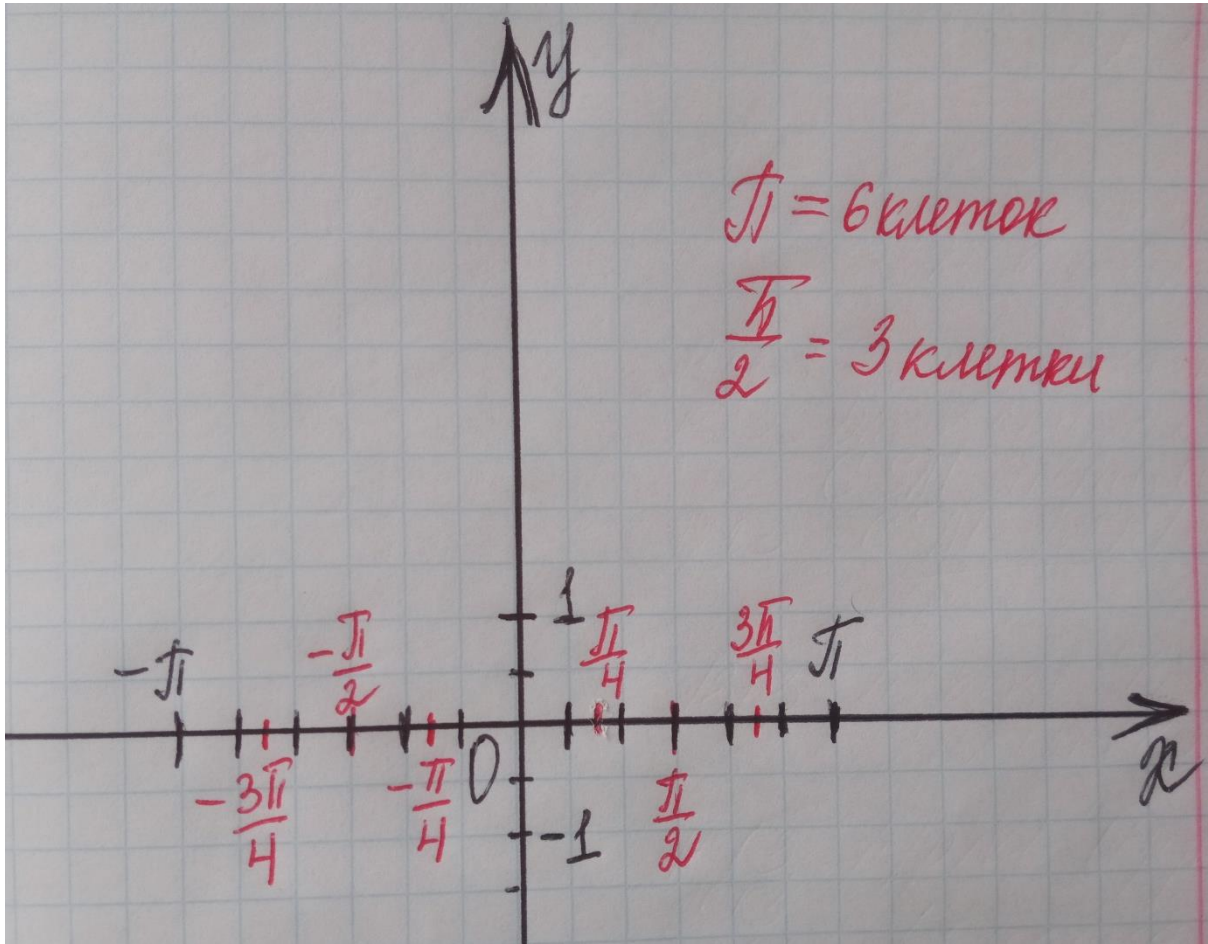 y
π = 6 клеток
π/2 = 3 клетки
1
-π
-π/2
π/4
3π/4
π
-3π/4
-π/4
0
π/2
x
-1